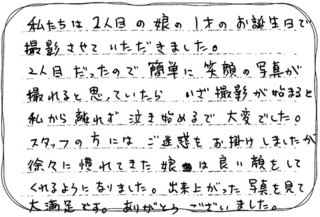 私たちは2人目の娘の1才のお誕生日で
撮影させていただきました。
2人目だったので簡単に笑顔の写真が
撮れると思っていたら いざ撮影が始まると
私から離れず泣き始めるで大変でした。
スタッフの方にはご迷惑をお掛けしましたが
徐々に慣れてきた娘は良い顔をして
くれるようになりました。出来上がった写真を見て
大満足です。ありがとうございました。